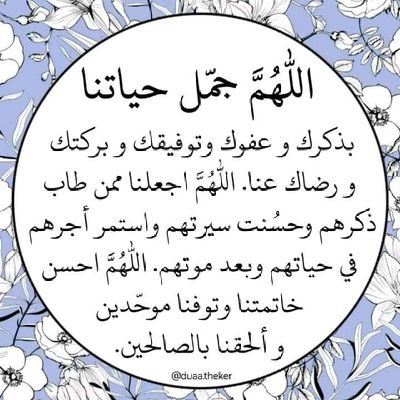 اللّٰهُمَّ جمّل حياتنا
بذكرك و عفوك وتوفيقك و بركتك
و رضاك عنا. اللّٰهُمَّ اجعلنا ممن طاب
ذكرهم وحسُنت سيرتهم واستمر أجرهم
في حياتهم وبعد موتهم. اللّٰهُمَّ احسن
خاتمتنا وتوفنا موحّدين
و ألحقنا بالصالحين.
@duaa.theker